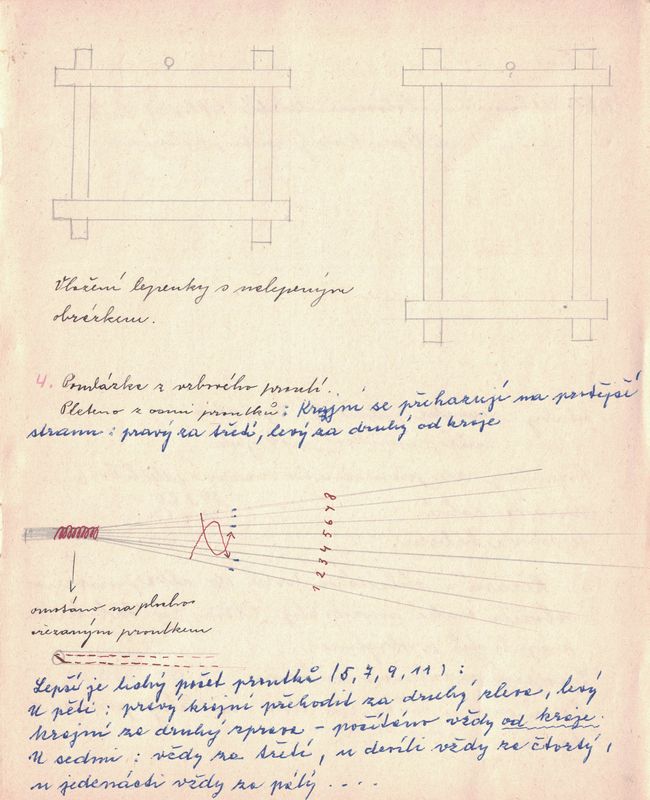 Vložení lepenky s nalepeným
obrázkem.
4. Pomlázka z vrbového proutí.
Pleteno z osmi proutků: Krajní se přehazují na protější
stranu: pravý za třetí, levý za druhý od kraje
1 2 3 4 5 6 7 8
omotáno na plocho
řezaným proutkem
Lepší je lichý počet proutků (5, 7, 9, 11):
U pěti: pravý krajní přehodit za druhý zleva, levý
krajní za druhý zprava – počítáno vždy od kraje.
U sedmi: vždy za třetí, u devíti vždy za čtvrtý,
u jedenácti vždy za pátý ....